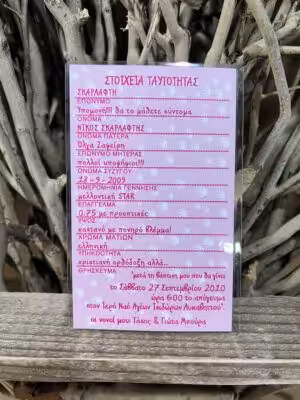 ΣΤΟΙΧΕΙΑ ΤΑΥΤΟΤΗΤΑΣ
ΣΚΑΡΛΑΦΤΗ
ΕΠΩΝΥΜΟ
Υπομονή!!! θα το μάθετε σύντομα
ΟΝΟΜΑ
ΝΙΚΟΣ ΣΚΑΡΛΑΦΤΗΣ
ΟΝΟΜΑ ΠΑΤΕΡΑ
Όλγα Σαφείρη
ΕΠΩΝΥΜΟ ΜΗΤΕΡΑΣ
πολλοί υποψήφιοι!!!
ΟΝΟΜΑ ΣΥΖΥΓΟΥ
18 - 9 - 2009
ΗΜΕΡΟΜΗΝΙΑ ΓΕΝΝΗΣΗΣ
μελλοντική STAR
ΕΠΑΓΓΕΛΜΑ
0.75 με προοπτικές
ΥΨΟΣ
καστανό με πονηρό βλέμμα!
ΧΡΩΜΑ ΜΑΤΙΩΝ
ελληνική
ΥΠΗΚΟΟΤΗΤΑ
χριστιανή ορθόδοξη αλλά...
ΘΡΗΣΚΕΥΜΑ
*μετά τη βάπτιση μου που θα γίνει
το Σάββατο 27 Σεπτεμβρίου 2010
ώρα 6:00 το απόγευμα
στον Ιερό Ναό Αγίων Ισιδώρων Λυκαβηττού*.
οι νονοί μου Τάσος & Γιώτα Μπούρα